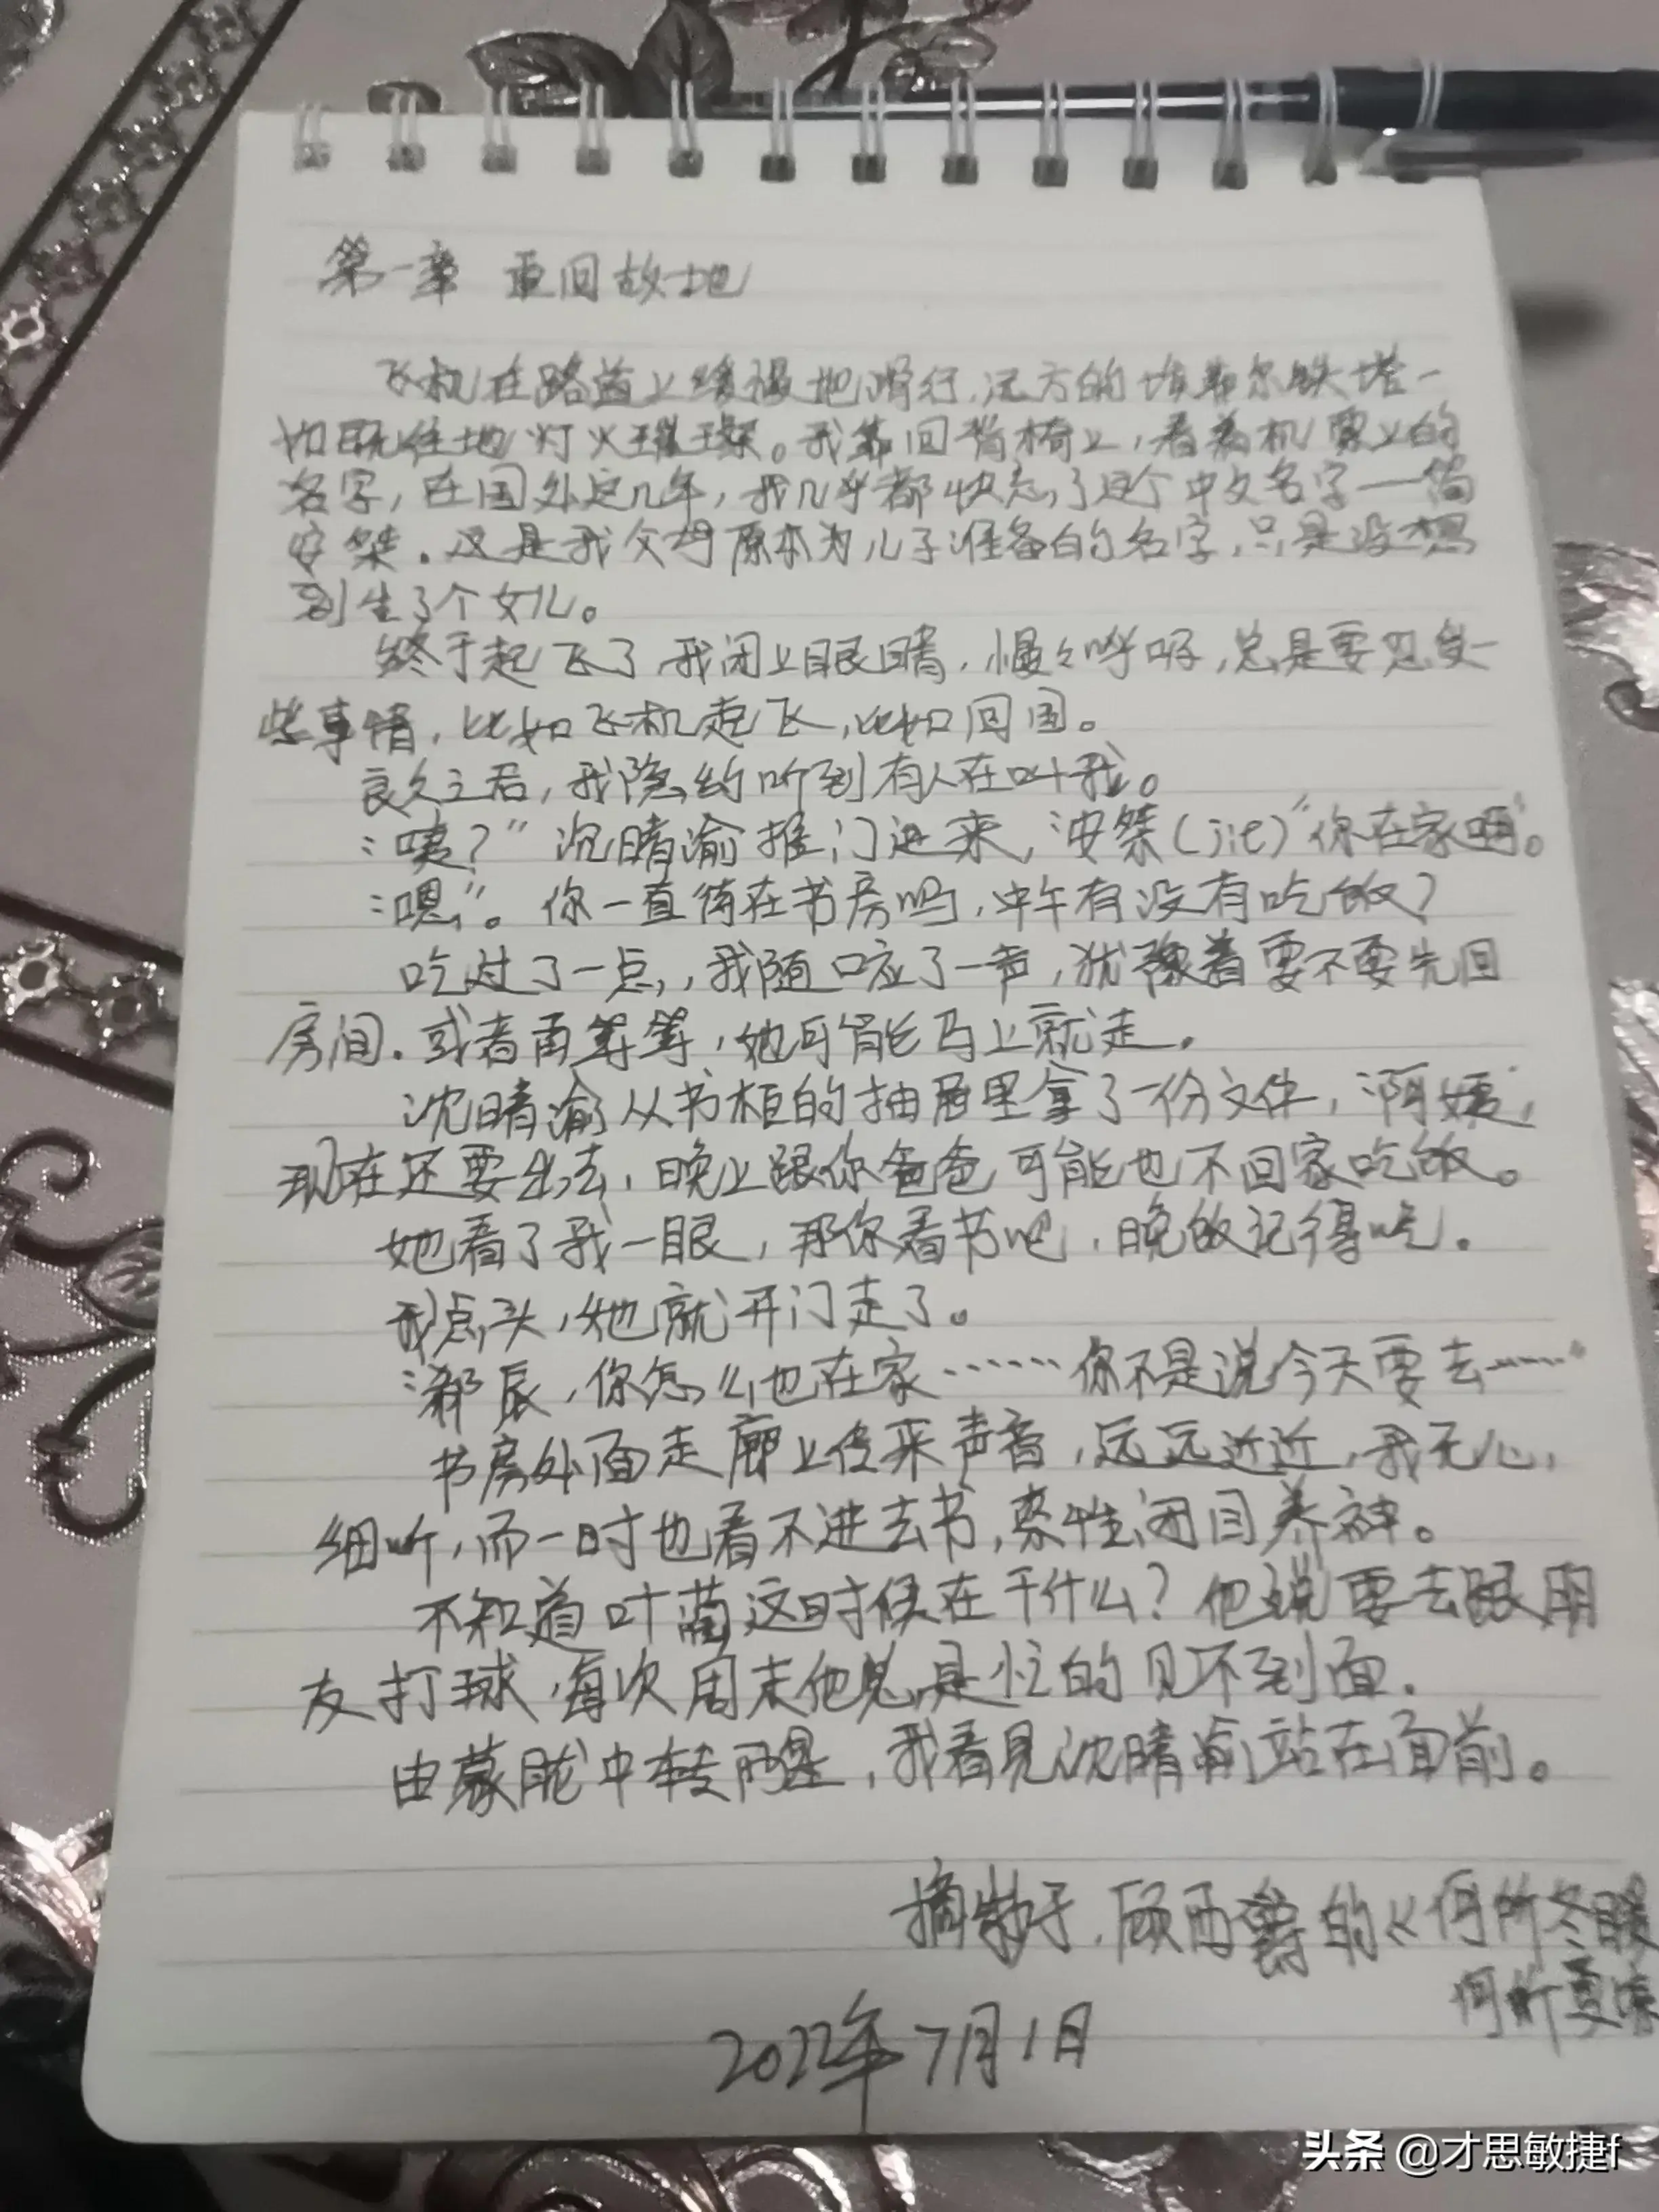 第一章 重回故地
飞机在路道上缓缓地滑行,远方的埃菲尔铁塔一
如既往地灯火璀璨。我靠回背椅上,看着机票上的
名字,在国外这几年,我几乎都快忘了这个中文名字——简
安桀.这是我父母原本为儿子准备的名字,只是没想
到生了个女儿。
终于起飞了,我闭上眼睛,慢々呼吸,总是要忍受一
些事情,比如飞机起飞,比如回国。
良久之后,我隐约听到有人在叫我。
“咦?”沈晴渝推门进来,“安桀(jié)“你在家啊”。
“嗯”。你一直待在书房吗,中午有没有吃饭?
吃过了一点,我随口应了一声,犹豫着要不要先回
房间.或者再等等,她可能马上就走.
沈晴渝从书柜的抽屉里拿了一份文件,“阿姨,
现在还要出去,晚上跟你爸爸可能也不回家吃饭。
她看了我一眼,那你看书吧,晚饭记得吃.
我点头,她就开门走了。
“郗辰,你怎么也在家……你不是说今天要去……”
书房外面走廊上传来声音,远远近近,我无心,
细听,而一时也看不进去书,索性闭目养神。
不知道叶蔺这时候在干什么?他说要去跟朋
友打球,每次周末他总是忙的见不到面.
由蒙胧中转醒,我看见沈晴渝站在面前。
摘抄于.顾西爵的《何所冬暖
何所夏凉
2022年7月1日
头条 @才思敏捷f